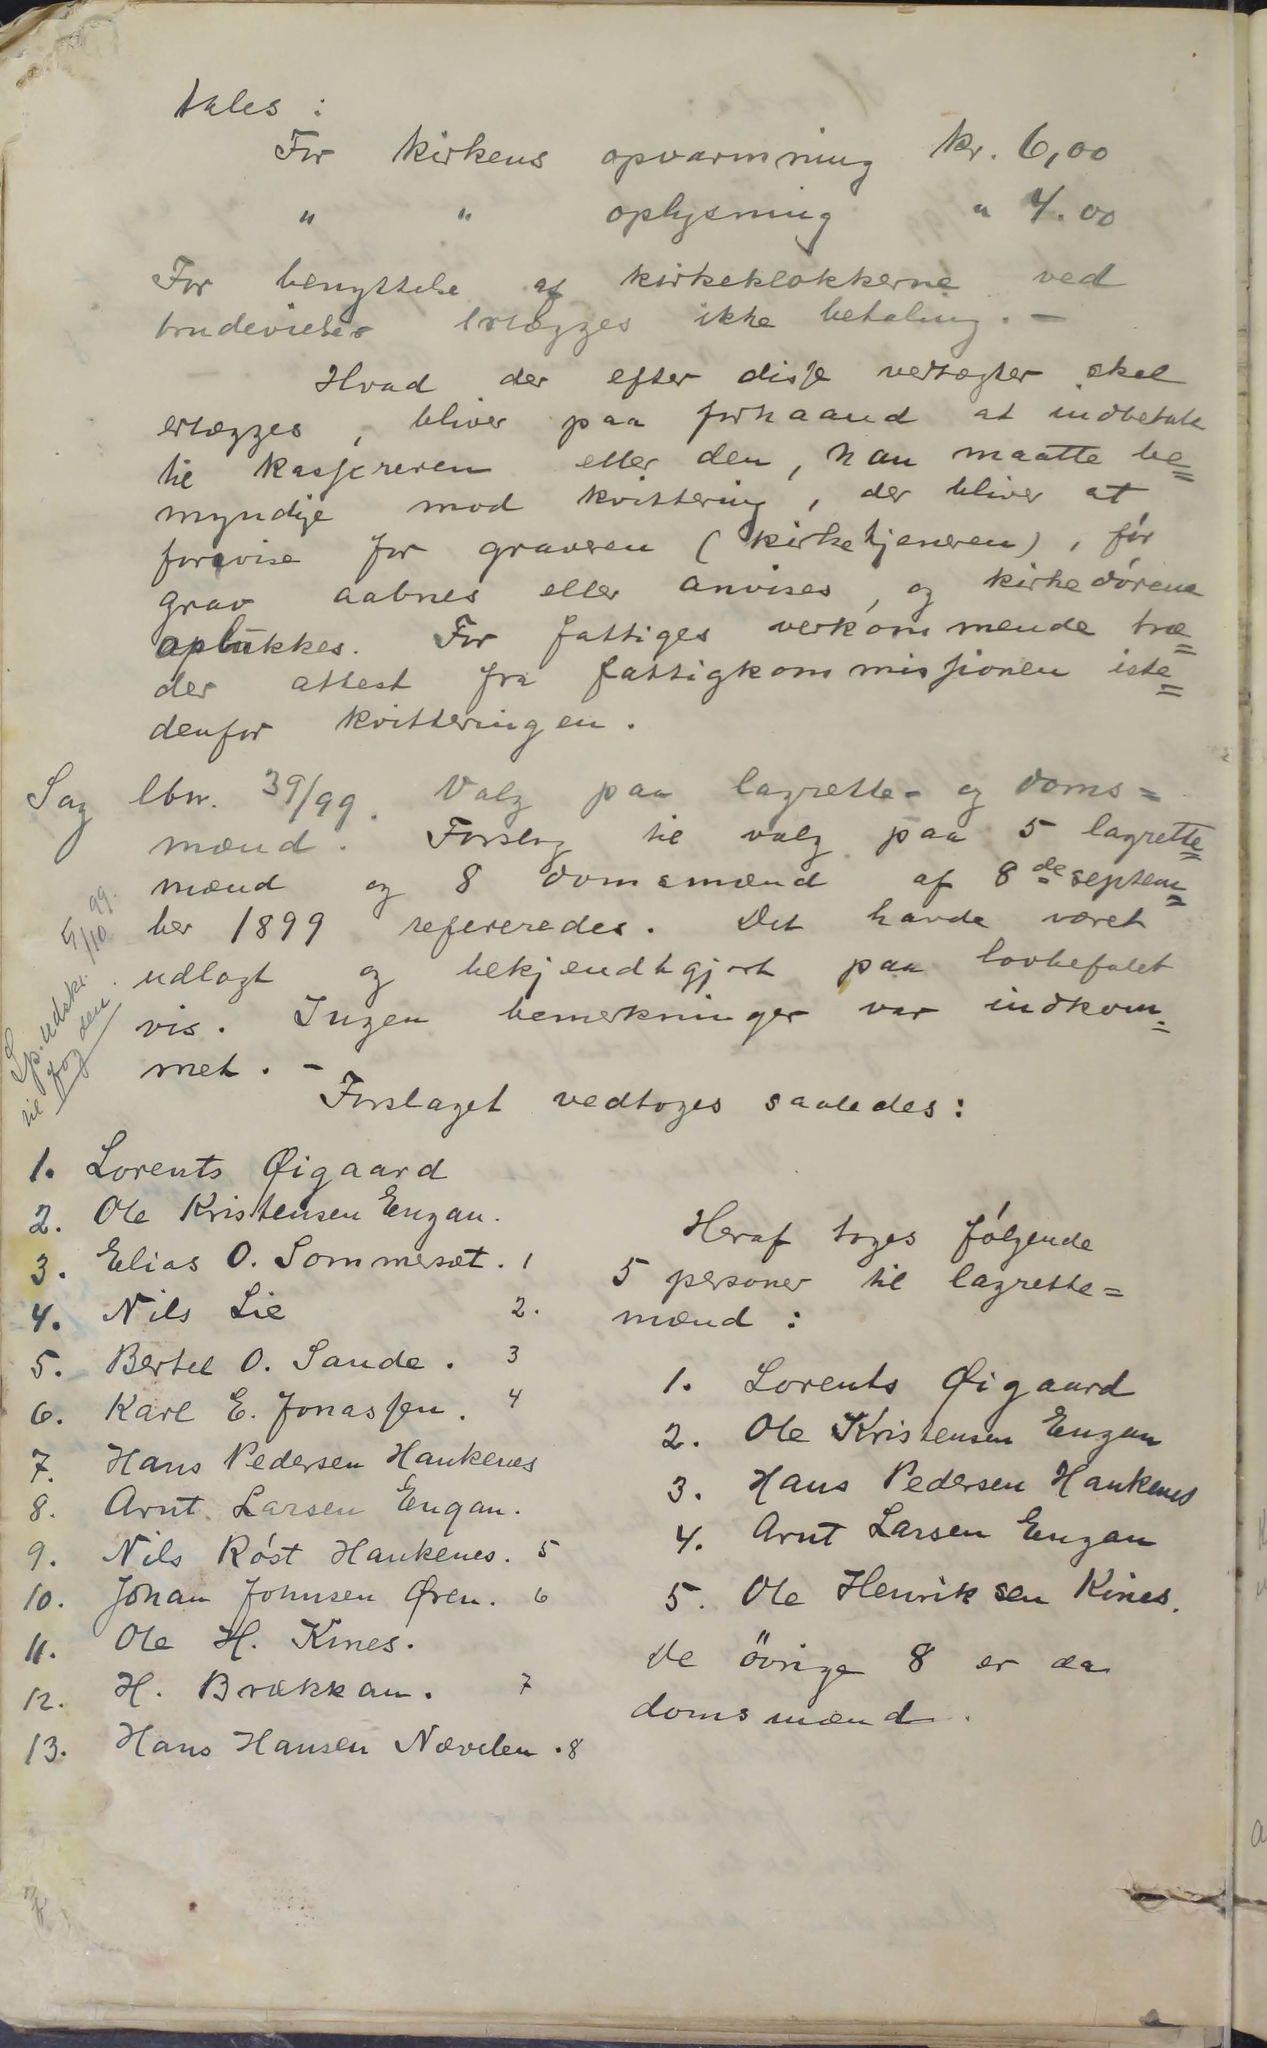 tales :
For kirkens opvarmning kr. 6,00
" " oplysning " 4.00
For benyttelse af kirkeklokkerne ved
brudevielser erlægges ikke betaling. -
Hvad der efter disse vedtægter skal
erlægges, bliver paa forhaand at indbetale
til kassereren eller den, han maatte be=
myndige mod kvittering, der bliver at
forevise for graveren (kirketjeneren), før
grav aabnes eller anvises, og kirkedørene
oplukkes. For fattiges vedkommende træ=
der attest fra fattigkommissionen iste=
denfor kvitteringen.
Sag lbnr. 39/99. Valg paa lagrette- og doms=
mænd. Forslag til valg paa 5 lagrette=
mænd og 8 domsmænd af 8de septem=
ber 1899 refereredes. Det havde været
udlagt og bekjendtgjort paa lovbefalet
vis. Ingen bemerkninger var indkom=
met. -
Sp. udskr. 5/10 99.
til fogden.
Forslaget vedtoges saaledes:
1. Lorents Øigaard
2. Ole Kristensen Engan.
3. Elias O. Sommerset. 1
4. Nils Lie 2.
5. Bertel O. Sande. 3
6. Karl E. Jonassen. 4
7. Hans Pedersen Haukenes
8. Arnt Larsen Engan.
9. Nils Røst Haukenes. 5
10. Johan Johnsen Øren. 6
11. Ole H. Kines.
12. H. Brækkan. 7
13. Hans Hansen Nævelen. 8
Heraf toges følgende
5 personer til lagrette=
mænd :
1. Lorents Øigaard
2. Ole Kristensen Engan
3. Hans Pedersen Haukenes
4. Arnt Larsen Engan
5. Ole Henriksen Kines.
de øvrige 8 er da
domsmænd.